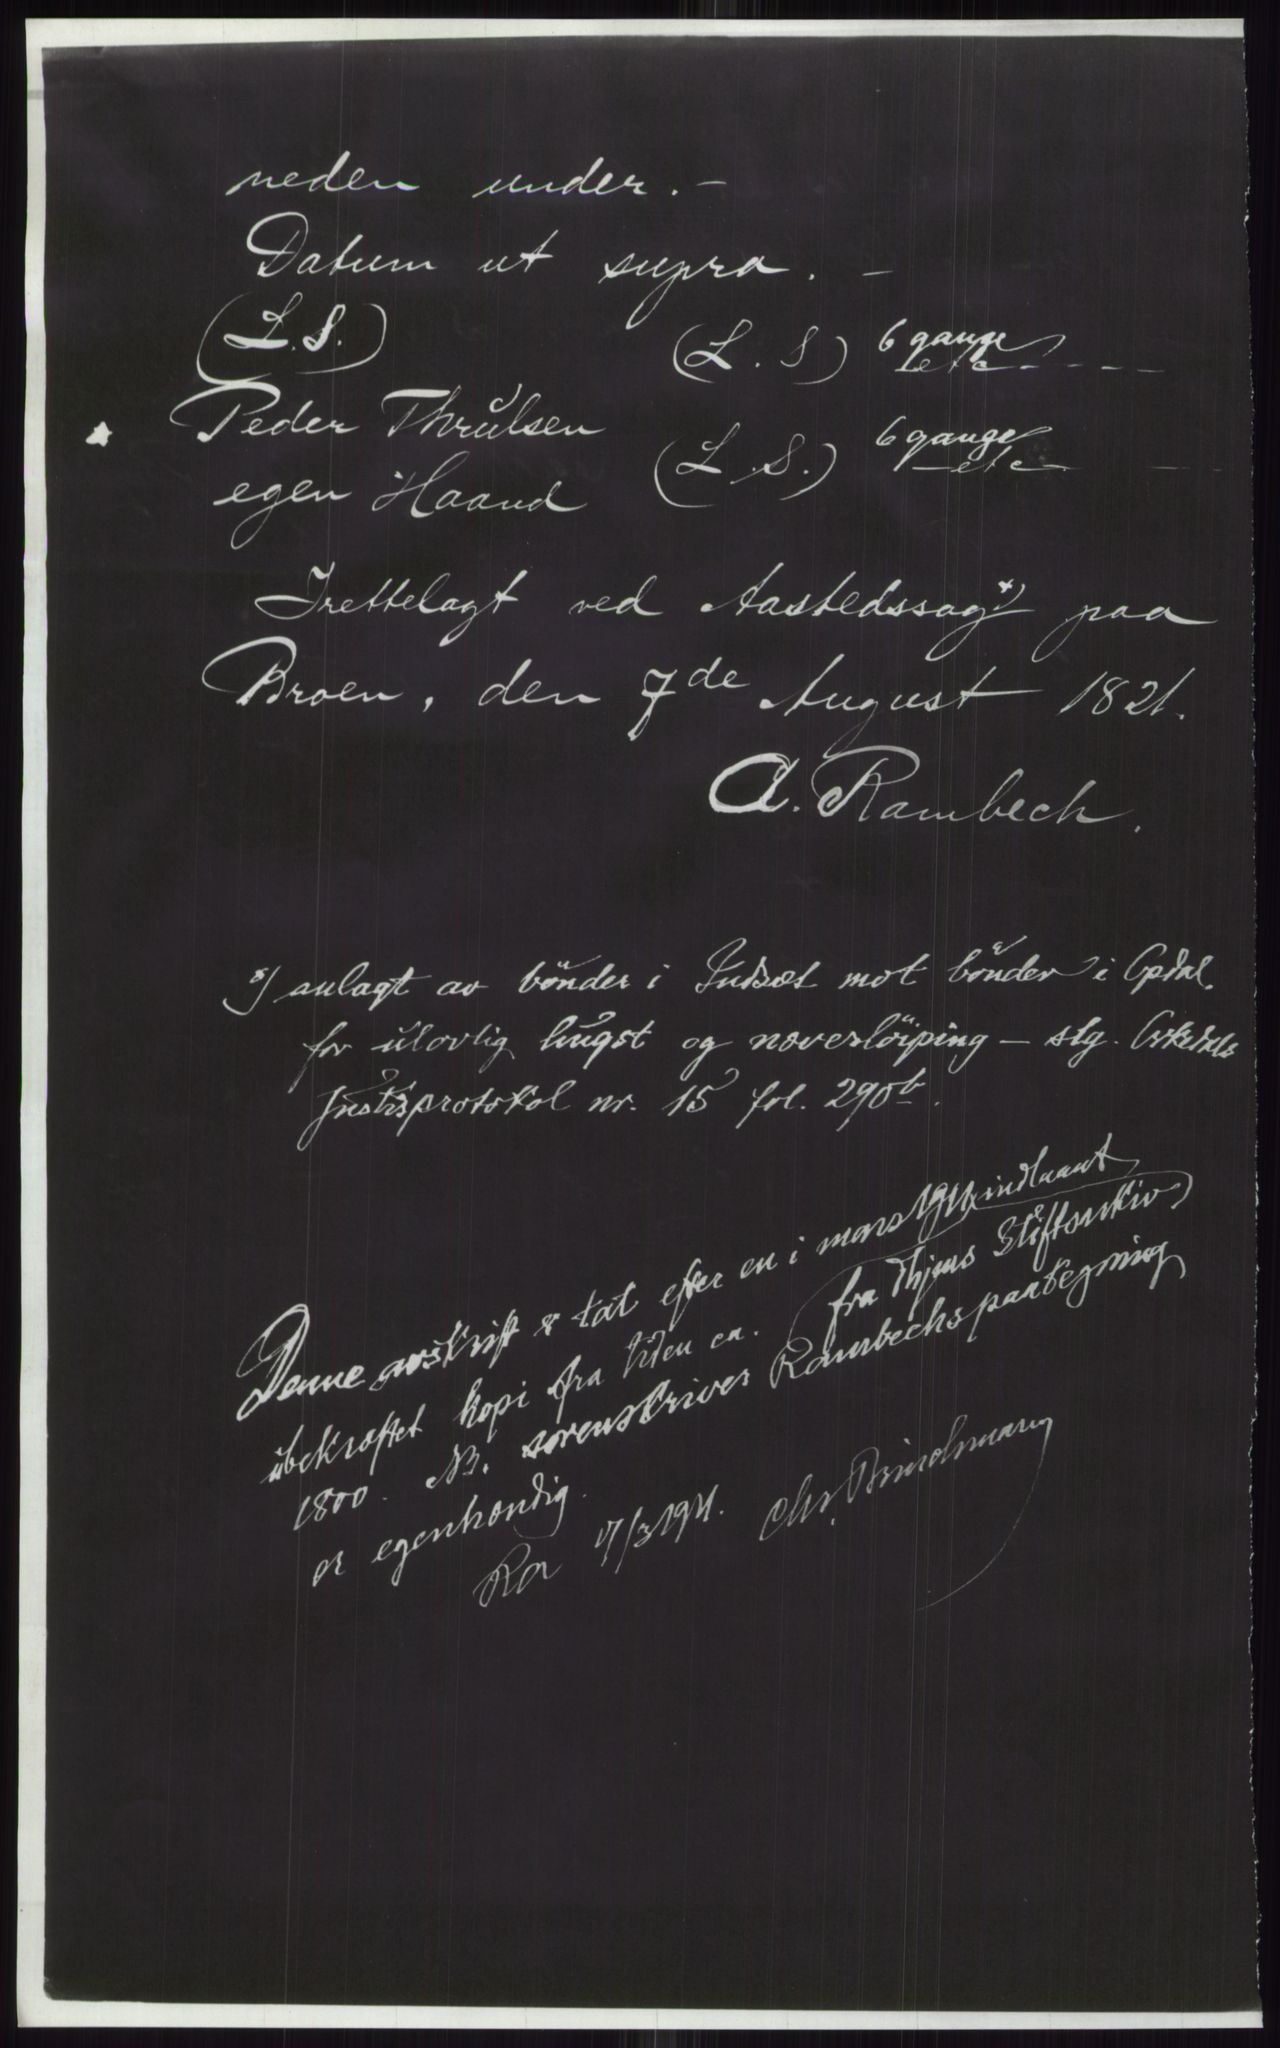 neden under. –
Datum ut supra. –
(L. S.) (L. S) 6 gange etc - - - -
Peder Thrülsen (L. S.) 6 gange – etc –
egen Haand
Irettelagt ved Aastedssag*) paa
Broen, den 7de August 1821.
A. Rambech.
*) anlagt av bönder i Indset mot bönder i Opdal
for ülovlig hügst og næverlöiping – slg. Orkedals
Jüstisprotokol nr. 15 fol. 290b.
Denne avskrift er tat efter en i mars 1911 indlaant
(fra Thjems Stiftsarkiv)
übekræftet kopi fra tiden ca.
1800. NB. sorenskriver Rambechs paategning
er egenhændig.
17/3 1911. Chr. Brinchmann